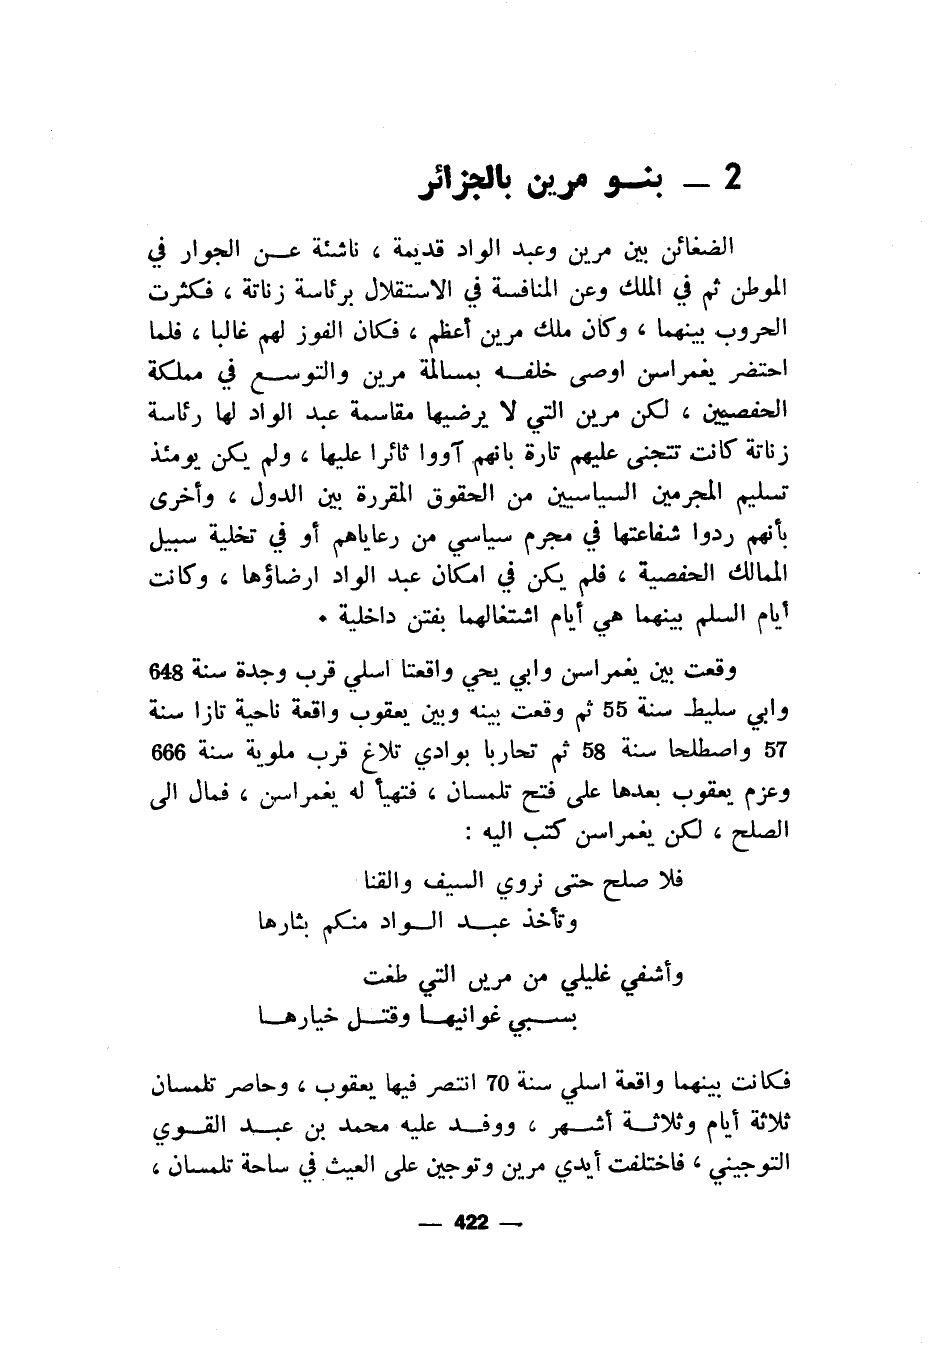 2 — بنو مرين بالجزائر
الضغائن بين مرين وعبد الواد قديمة ، ناشئة عن الجوار في
الموطن ثم في الملك وعن المنافسة في الاستقلال برئاسة زناتة ، فكثرت
الحروب بينهما ، وكان ملك مرين أعظم ، فكان الفوز لهم غالبا ، فلما
احتضر يغمراسن اوصى خلفه بمسالمة مرين والتوسع في مملكة
الحفصيين ، لكن مرين التي لا يرضيها مقاسمة عبد الواد لها رئاسة
زناتة كانت تتجنى عليهم تارة بانهم آووا ثائرا عليها ، ولم يكن يومئذ
تسليم المجرمين السياسيين من الحقوق المقررة بين الدول ، وأخرى
بأنهم ردوا شفاعتها في مجرم سياسي من رعاياهم أو في تخلية سبيل
الممالك الحفصية ، فلم يكن في امكان عبد الواد ارضاؤها ، وكانت
أيام السلم بينهما هي أيام اشتغالهما بفتن داخلية .
وقعت بين يغمراسن وابي يحي واقعتا اسلي قرب وجدة سنة 648
وابي سليط سنة 55 ثم وقعت بينه وبين يعقوب واقعة ناحية تازا سنة
57 واصطلحا سنة 58 ثم تحاربا بوادي تلاغ قرب ملوية سنة 666
وعزم يعقوب بعدها على فتح تلمسان ، فتهيأ له يغمراسن ، فمال الى
الصلح ، لكن يغمراسن كتب اليه :
فلا صلح حتى نروي السيف والقنا
وتأخذ عبد الواد منكم بثارها
وأشفي غليلي من مرين التي طغت
بسبي غوانيها وقتل خيارها
فكانت بينهما واقعة اسلي سنة 70 انتصر فيها يعقوب ، وحاصر تلمسان
ثلاثة أيام وثلاثة أشهر ، ووفد عليه محمد بن عبد القوي
التوجيني ، فاختلفت أيدي مرين وتوجين على العيث في ساحة تلمسان ،
— 422 —